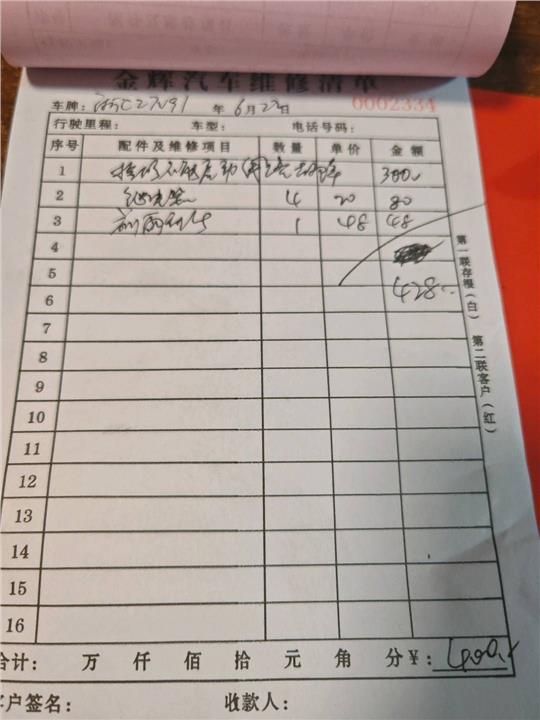 金辉汽车维修清单
车牌: 浙C27V91 年6月22日 0002334
行驶里程: 车型: 电话号码:
序号 配件及维修项目 数量 单价 金额
1 300
2 继电器 4 20 80
3 1 48 48
4
5
6 428
7
8
9
10
11
12
13
14
15
16
合计: 万 仟 佰 拾 元 角 分 ¥: 400
客户签名: 收款人:
第一联存根(白) 第二联客户(红)